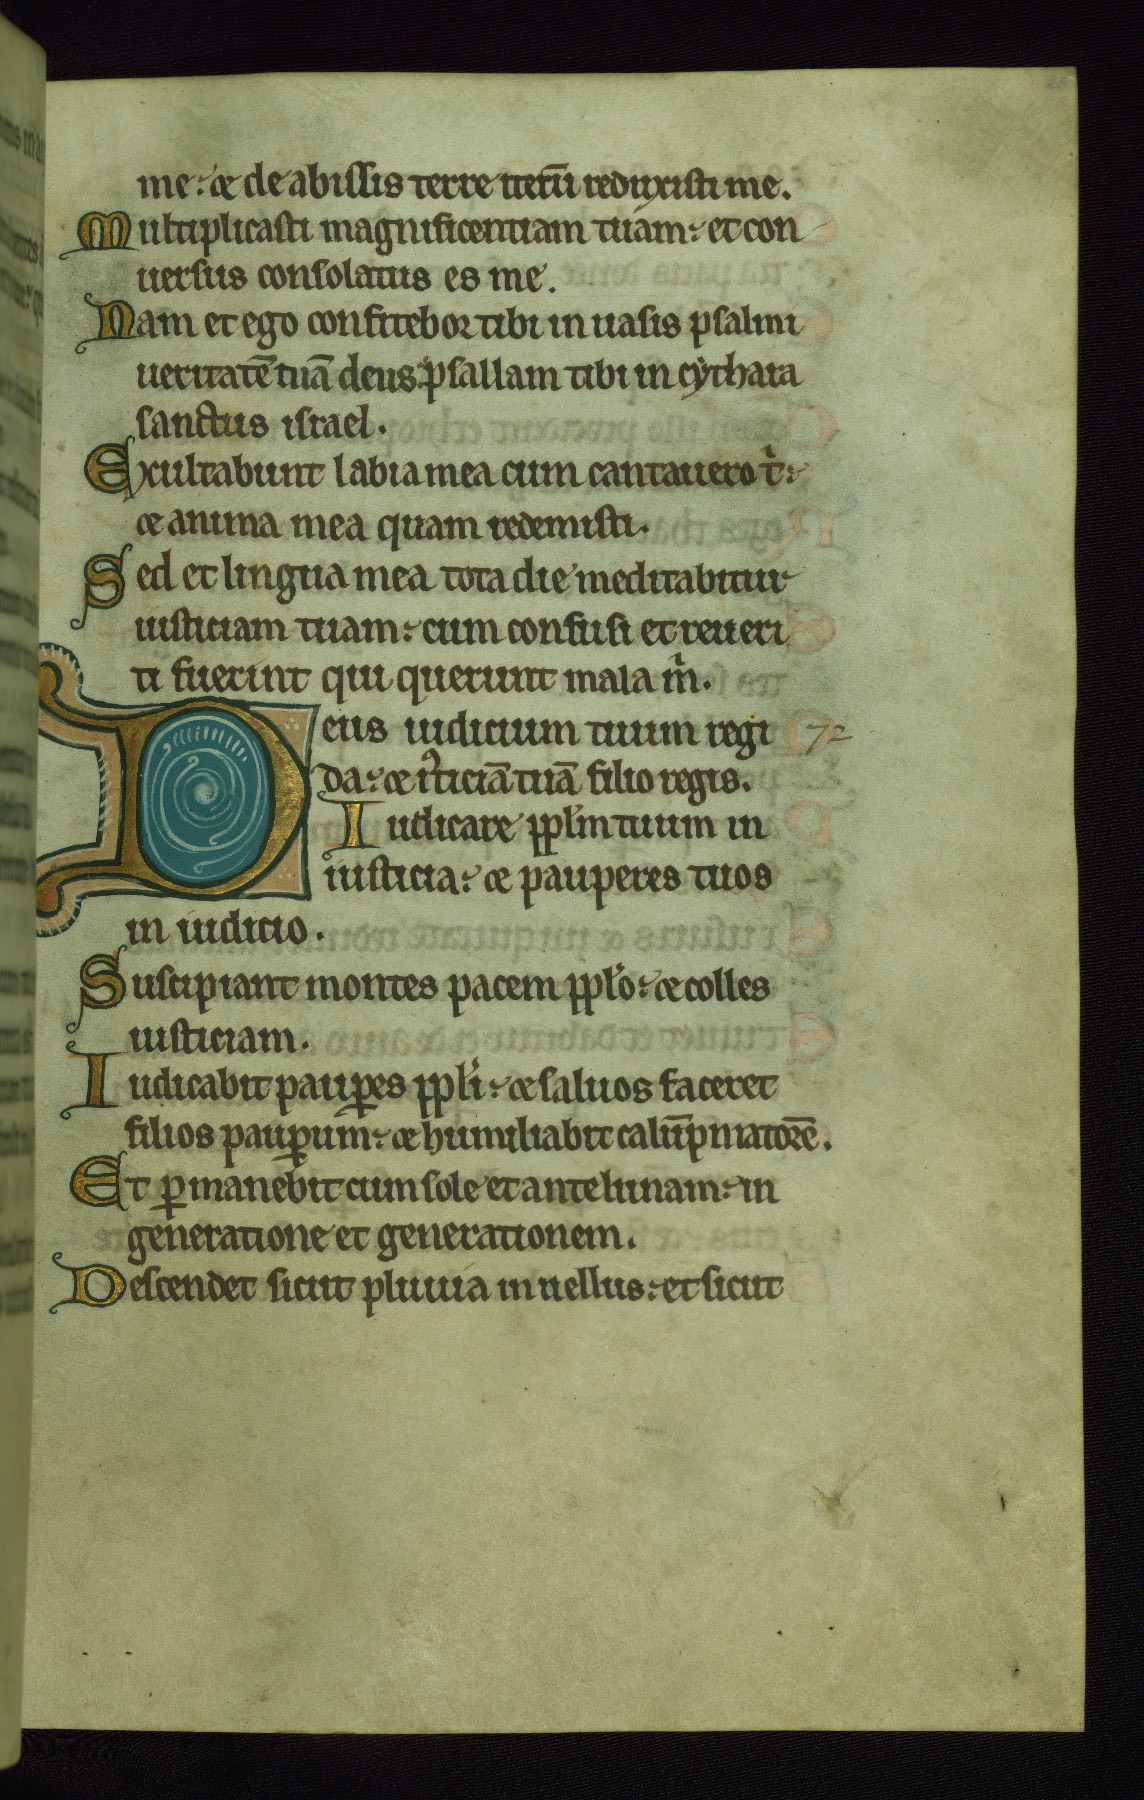 me. & de abissis terre iterū reduxisti me.
Multiplicasti magnificentiam tuam. et con
uersus consolatus es me.
Nam et ego confitebor tibi in uasis psalmi
ueritatē tuā deus. psallam tibi in cythara
sanctus israel.
Exultabunt labia mea cum cantauero t̄.
& anima mea quam redemisti.
Sed et lingua mea tota die meditabitur
iusticiam tuam. cum confusi et reueri
ti fuerint qui querunt mala m̄.
Deus iudicium tuum regi 72
da. & iꝰticiā tuā filio regis.
Iudicare pplm̄ tuum in
iusticia. & pauperes tuos
in iudicio.
Suscipiant montes pacem pplō. & colles
iusticiam.
Iudicabit paup̱es pplī. & saluos faceret
filios paup̱um. & humiliabit calūpniatorē.
Et p̱manebit cum sole et ante lunam. in
generatione et generationem.
Descendet sicut pluuia in uellus. et sicut